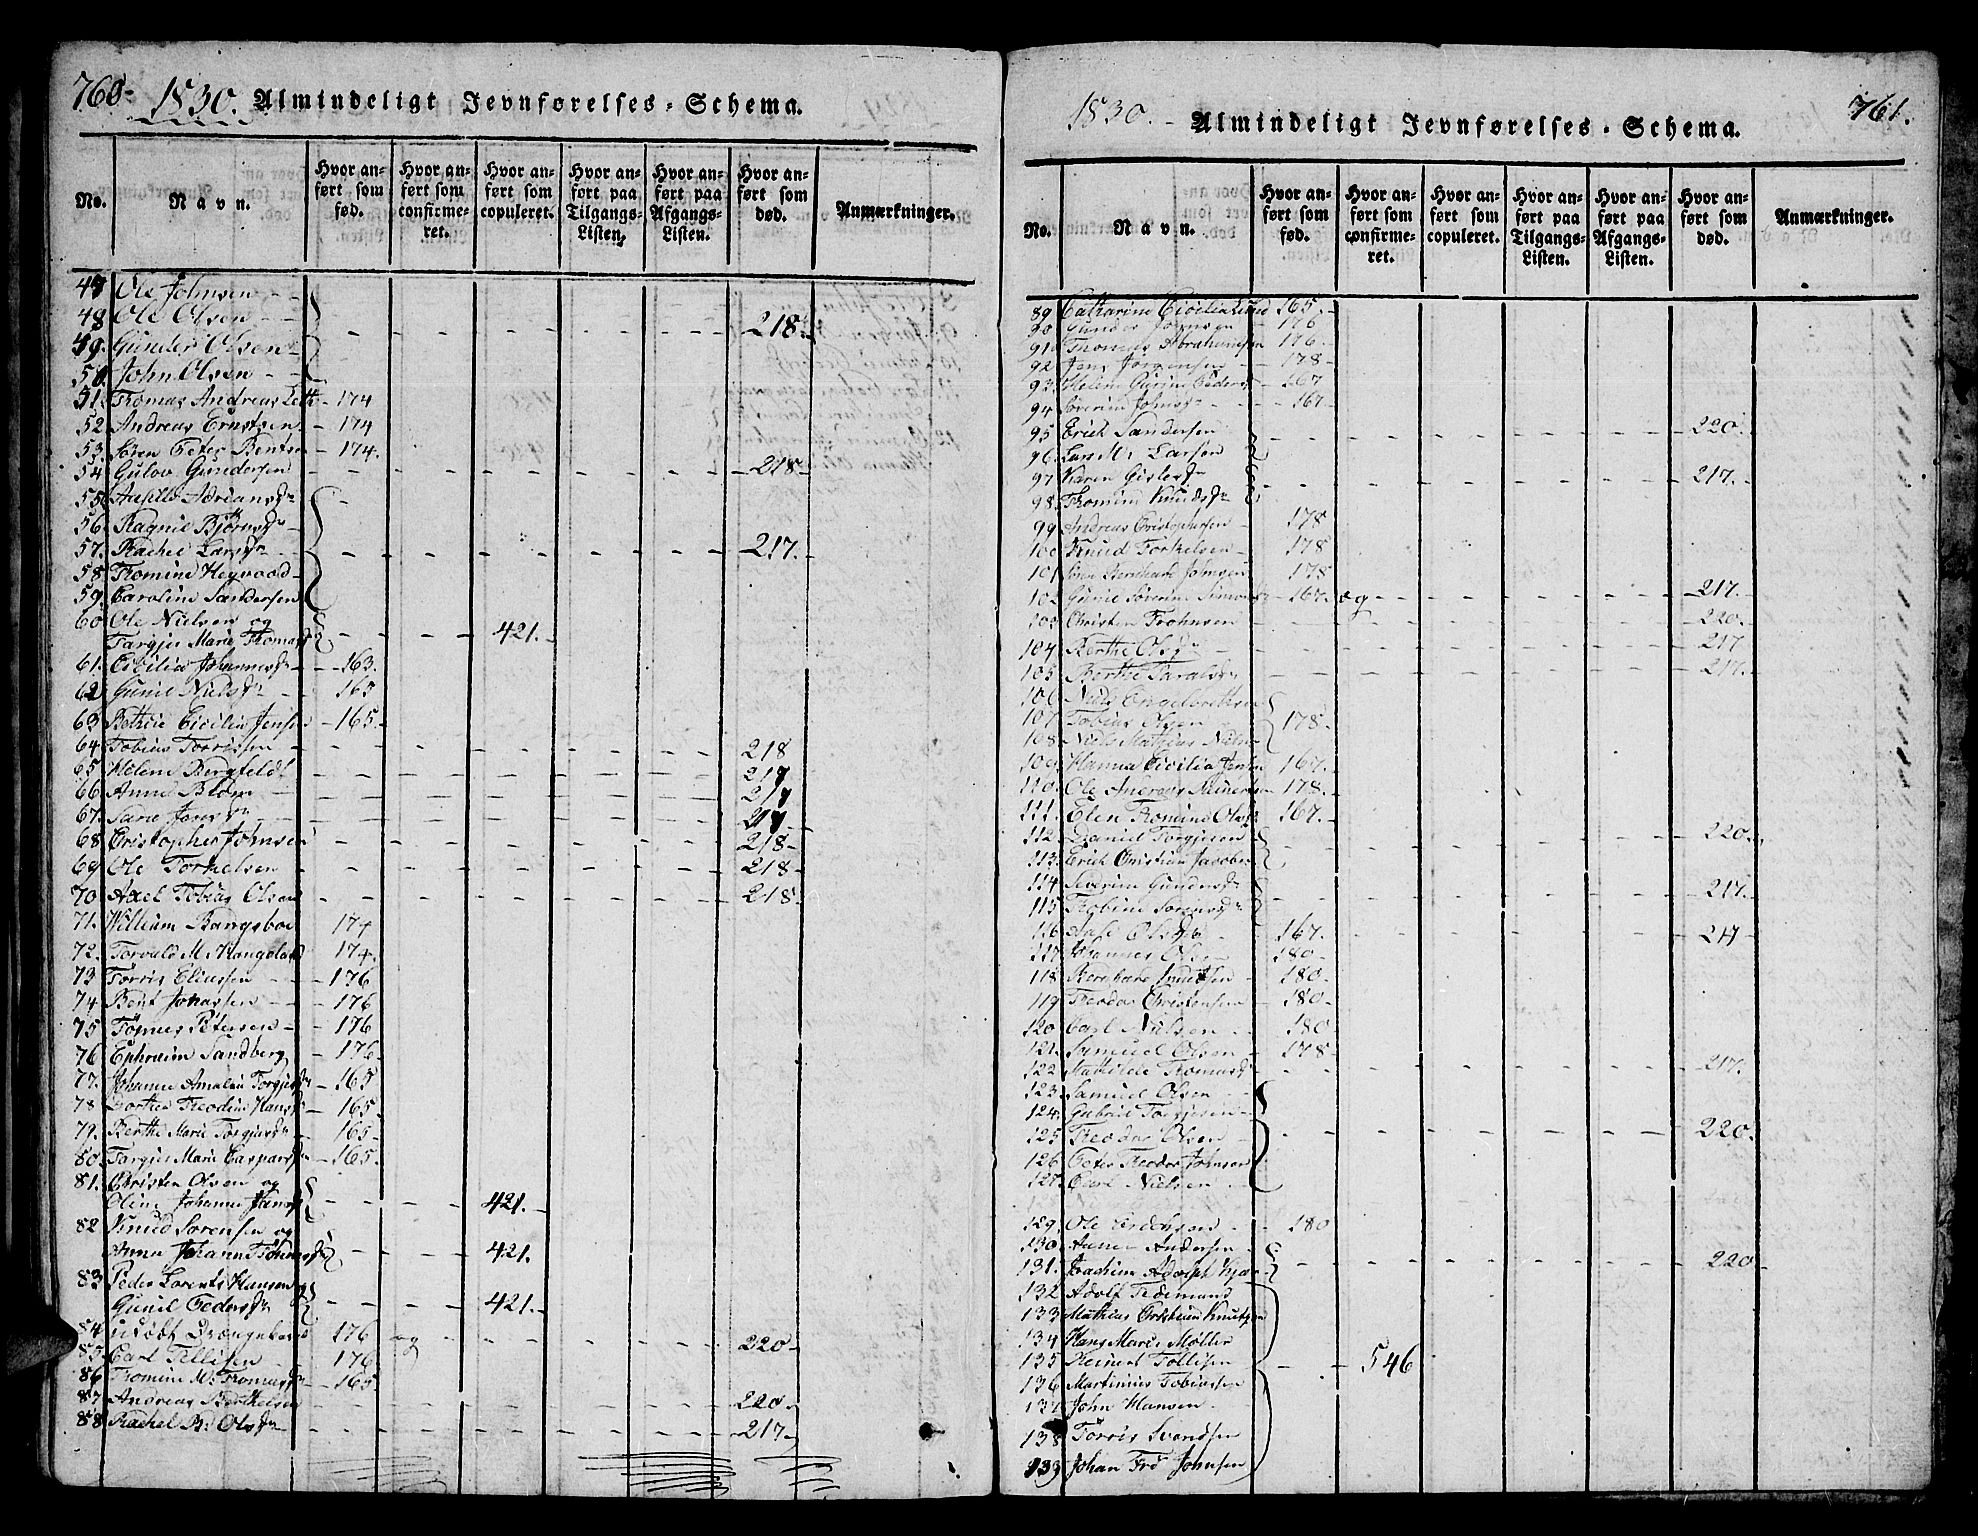 760-
1830. Almindeligt Jevnførelses-Schema.
No. Navn. Hvor anført som fød. Hvor anført som confirmeret. Hvor anført som copuleret. Hvor anført paa Tilgangs-Listen. Hvor anført paa Afgangs-Listen. Hvor anført som død. Anmærkninger.
47 Ole Johnsen
48. Ole Olsen 218.
49. Gunder Olsen
50. John Olsen
51. Thomas Andreas Leth 174
52. Andreas Ernstsen 174
53. Søren Peter Bentsen 174.
54. Gulov Gundersen 218
55. Adriansdr
56. Ragnil Bjørnsdr
57. Rachel Larsdr 217.
58 Tromine Heyvood
59. Caroline Sandersen
60. Ole Nielsen og
Targjer Marie Thomasdr 421.
61. Cicilia Johannesdr 163.
62 Gunil Nielsdr 165
63 Bethsie Cicilia Jensen 165.
64 Tobias Torrissen 218
65 Helene Bergfeldt 217
66 Anne Blom 217
67. Sare Jensdr 217
68 Cristopher Johnsen 218
69 Ole Torkelsen 218
70 Axel Tobias Olsen 218
71. William Bangsboe 174
72. Torvald M. Hangeland 174.
73 Torris Eliassen 176
74 Bent Johassen 176
75. Tønnes Petersen 176
76 Ephraim Sandberg 176
77. Johanne Amalia Torgjersdr 165
78 Dorthea Theodine Hansdr 165
79. Berthe Marie Torgjersdr 165
80. Targjer Marie Caspersdr 165.
81. Christen Olsen og
Oline Johanne Jansdr 421.
82 Knud Sørensen og
Anne Johanne Tønnesdr 421.
83 Peder Lorents Hansen og
Gunil Pedersdr 421.
84 176 og 220
85. Carl Tellisen 176
86 Tromine M. Tromasdr 165
87 Andreas Berthelsen 220
88 Rachel B. Olsdr 217
1830. Almindeligt Jevnførelses-Schema. 761.
No. Navn. Hvor anført som fød. Hvor anført som confirmeret. Hvor anført som copuleret. Hvor anført paa Tilgangs-Listen. Hvor anført paa Afgangs-Listen. Hvor anført som død. Anmærkninger.
89 Catharine Cicilia Lund 165.
90 Gunder Johnsen 176
91 Thomas Abrahamsen 176.
92 Jens Jørgensen 178
93. Helene Gurine Pedersdr 167
94 Søverine Johnsdr 167.
95 Erich Sandersen 220.
96. Lars M. Larsen
97 Karen Gislesdr 217.
98. Tromine Knudsdr
99 Andreas Cristophersen 178
100 Knud Torkelsen 178
101 Søren Bernhard Johnsen 178
102 Gunil Søverine Simonsdr 167. og 217.
103 Christen Frohnsen 220.
104 Berthe Olsdr 217
105 Berthe Taralsdr 217.
106 Niels Engelbrethsen
107 Tobias Olsen 178
108 Niels Mathias Nielsen
109. Hanna Cicilia Jensen 167.
110. Ole Andreas Reinertsen 178.
111. Elen Tromine Olsdr 167.
112. Daniel Torgjersen 220.
113. Erich Christian Jacobsen
114 Severine Gundersdr 217.
115 Tobine Sørensdr
116 Aase Olsdr 167. 217
117. Johannes Olsen 180
118 Bernhard Knudsen 180.
119 Theodor Christensen 180
120 Carl Nielsen 180
121. Samuel Olsen 178
122 Mathilde Tromasdr 217.
123 Samuel Olsen
124. Gabriel Torgjersen
125 Theodor Olsen 220.
126 Peter Theodor Johnsen
127. Carl Nielsen
129. Ole Erichsen 180
130. Andersen 220
131. Joachim Adolph Kjær
132 Adolf Tidemand
133 Mathias Cristian Knutsen
134 Hans Marie Møller
135 Reinert Tollisen 546
136 Martinius Tobiassen
137 John Hansen
138 Torris Svendsen
139 Johan Fró Johnsen